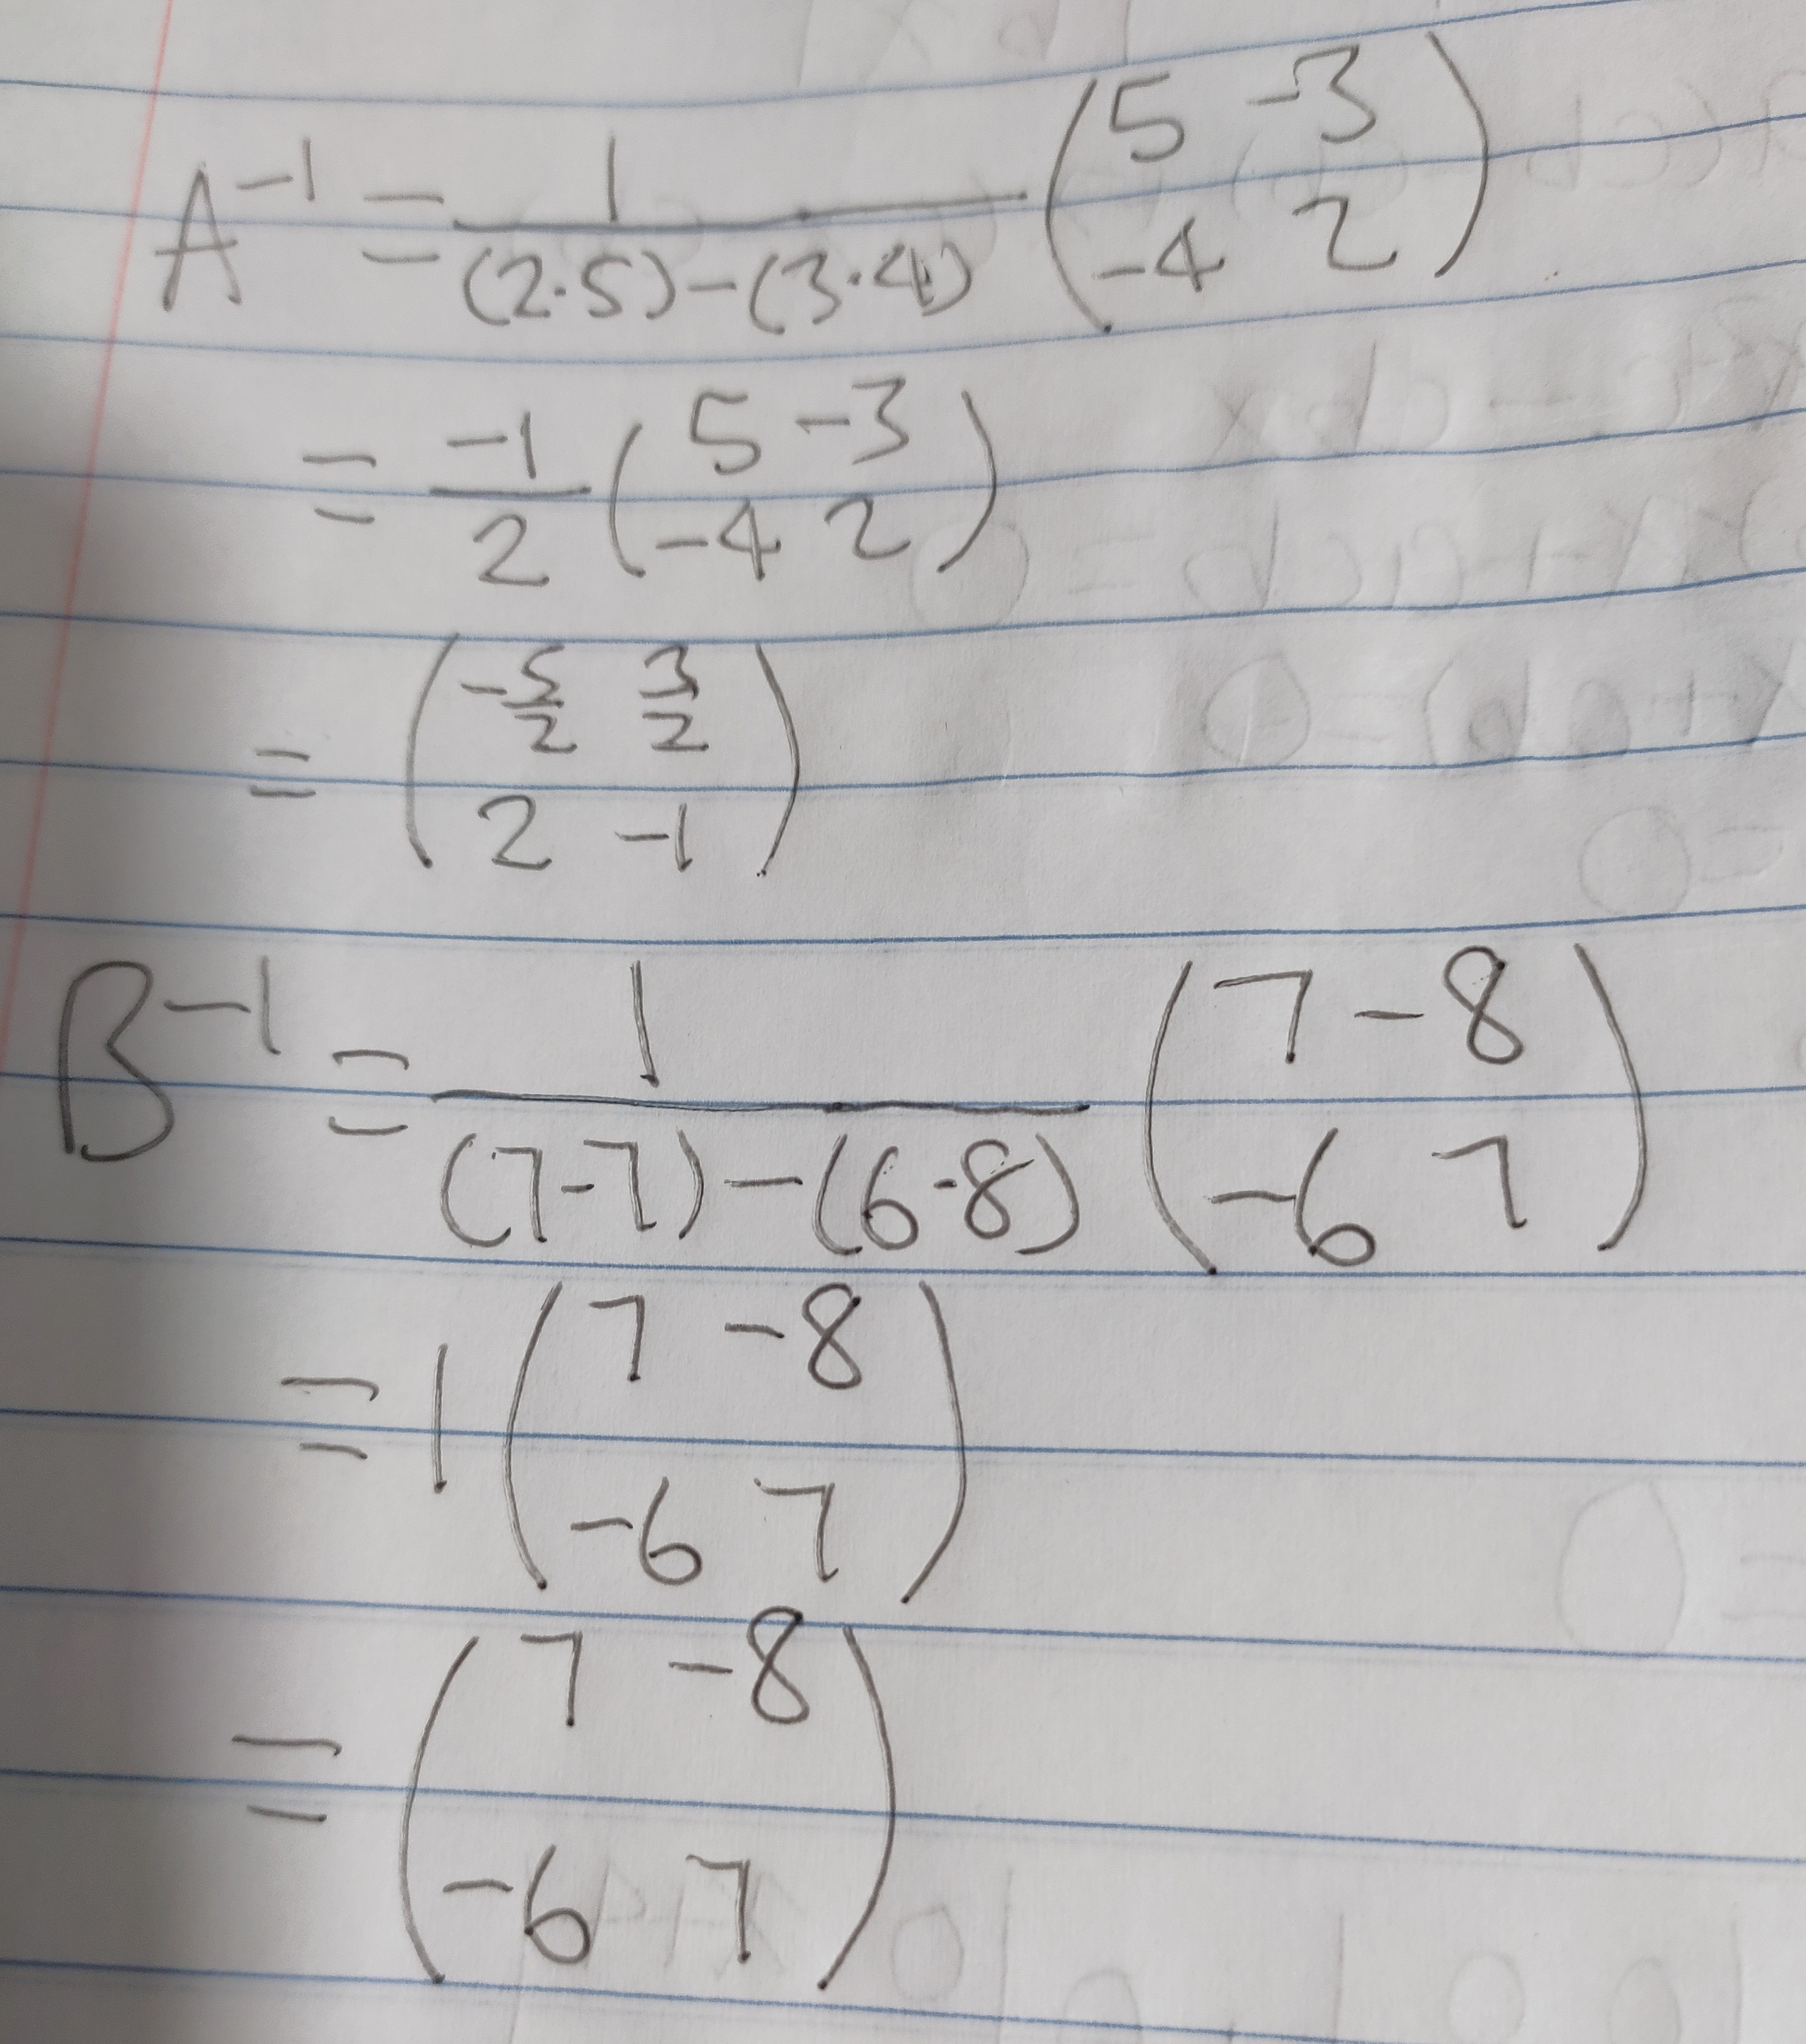 A⁻¹ = 1/((2·5)-(3·4)) (5 -3; -4 2)
= -1/2 (5 -3; -4 2)
= (-5/2 3/2; 2 -1)
B⁻¹ = 1/((7·7)-(6·8)) (7 -8; -6 7)
= 1 (7 -8; -6 7)
= (7 -8; -6 7)